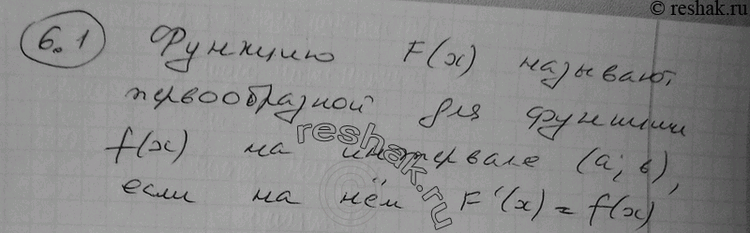 ©reshak.ru
6.1 Функцию F(x) называют
первообразной для функции
reshak.ru
f(x) на интервале (a; в),
если на нём F'(x) = f(x)